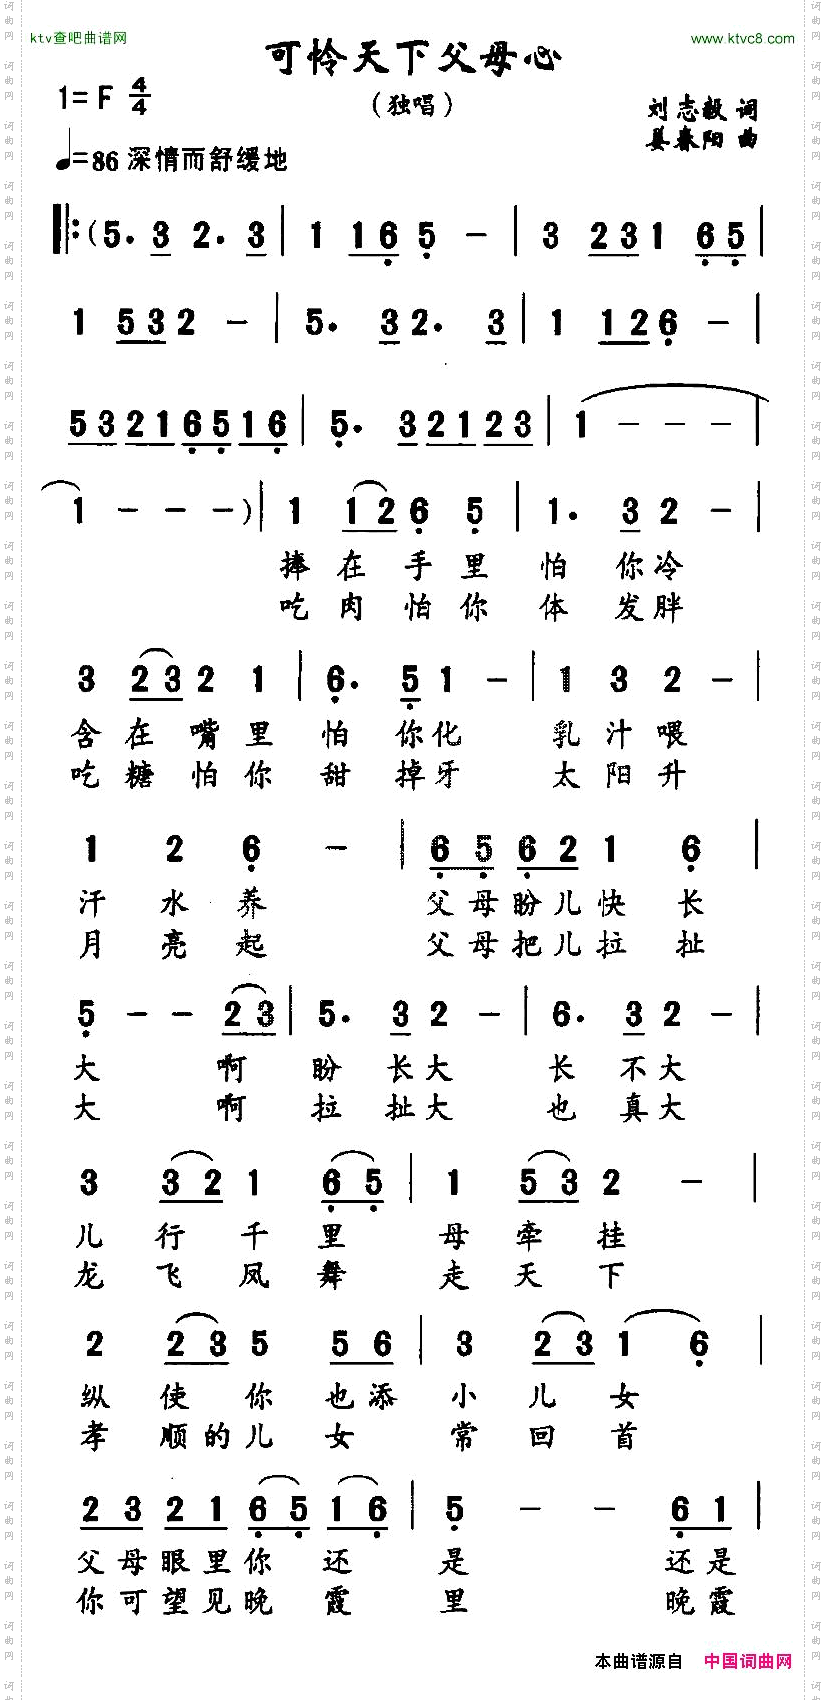 ktv查吧曲谱网
www.ktvc8.com
可怜天下父母心
（独唱）
1= F 4/4
刘志毅 词
姜春阳 曲
♩=86 深情而舒缓地
‖: (5. 3 2. 3 | 1 1 1 6 5 - | 3 2 3 1 6 5 |
1 5 3 2 - | 5. 3 2. 3 | 1 1 2 6 - |
5 3 2 1 6 5 1 6 | 5. 3 2 1 2 3 | 1 - - - |
1 - - - ) | 1 1 2 6 5 | 1. 3 2 - |
捧 在 手 里 怕 你 冷
吃 肉 怕 你 体 发 胖
3 2 3 2 1 | 6. 5 1 - | 1 3 2 - |
含 在 嘴 里 怕 你 化 乳 汁 喂
吃 糖 怕 你 甜 掉 牙 太 阳 升
1 2 6 - | 6 5 6 2 1 6 |
汗 水 养 父 母 盼 儿 快 长
月 亮 起 父 母 把 儿 拉 扯
5 - - 2 3 | 5. 3 2 - | 6. 3 2 - |
大 啊 盼 长 大 长 不 大
大 啊 拉 扯 大 也 真 大
3 3 2 1 6 5 | 1 5 3 2 - |
儿 行 千 里 母 牵 挂
龙 飞 凤 舞 走 天 下
2 2 3 5 5 6 | 3 2 3 1 6 |
纵 使 你 也 添 小 儿 女
孝 顺 的 儿 女 常 回 首
2 3 2 1 6 5 1 6 | 5 - - 6 1 |
父 母 眼 里 你 还 是 还 是
你 可 望 见 晚 霞 里 晚 霞
本曲谱源自 中国词曲网